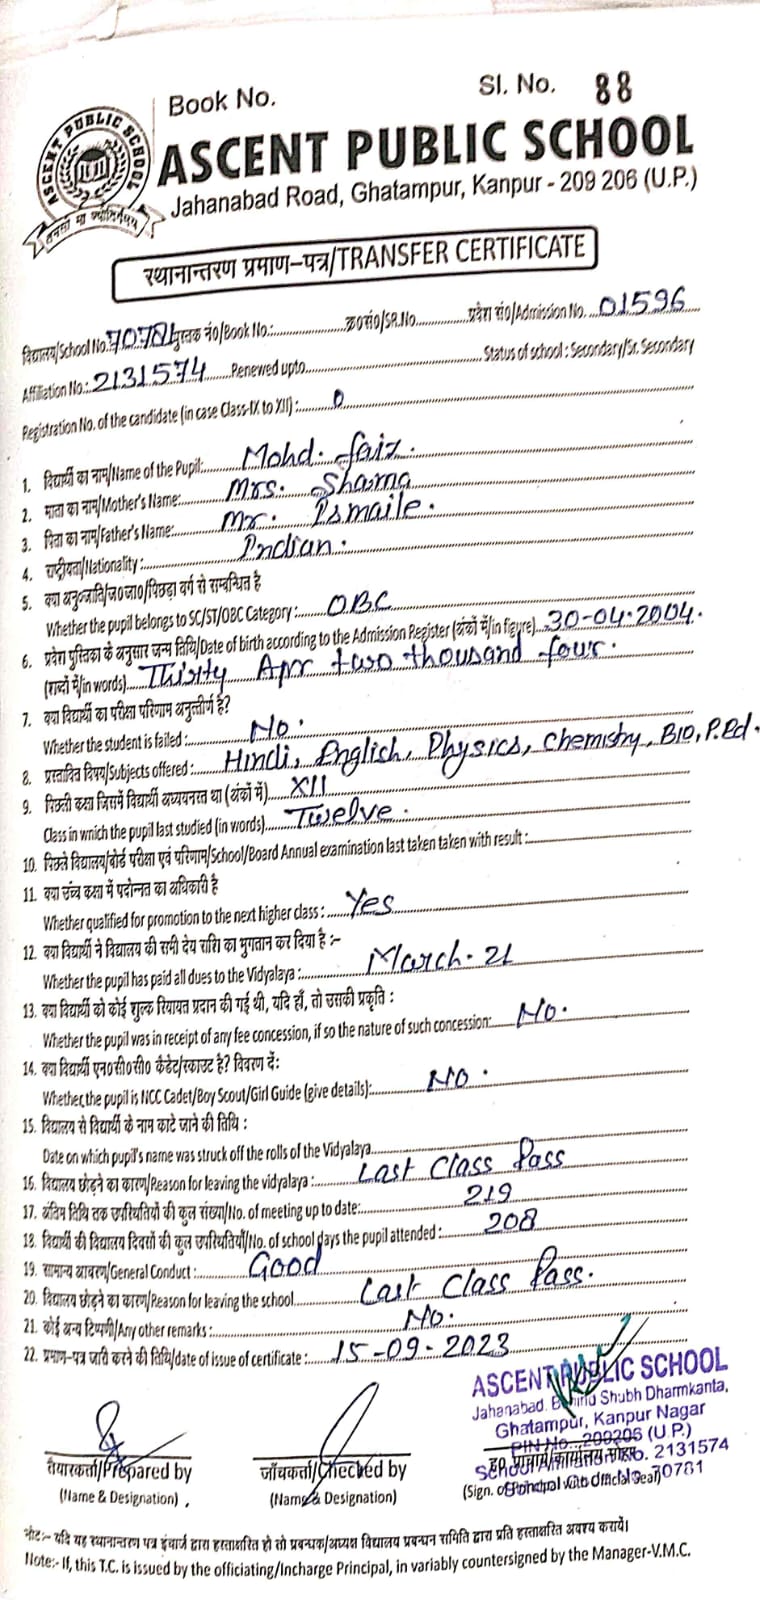 Book No.
Sl. No. 88
ASCENT PUBLIC SCHOOL
ASCENT PUBLIC SCHOOL
Jahanabad Road, Ghatampur, Kanpur - 209 206 (U.P.)
तमसो मा ज्योतिर्गमय
स्थानान्तरण प्रमाण-पत्र/TRANSFER CERTIFICATE
विद्यालय/School No. 70781 पुस्तक नं०/Book No.:............ क्र०सं०/SR.No............ प्रवेश सं०/Admission No. 01596
Affiliation No.: 2131574 Renewed upto............ Status of school : Secondary/Sr. Secondary
Registration No. of the candidate (in case Class-IX to XII) : 0
1. विद्यार्थी का नाम/Name of the Pupil: Mohd. faiz.
2. माता का नाम/Mother's Name: Mrs. Shama
3. पिता का नाम/Father's Name: Mr. Ismaile.
4. राष्ट्रीयता/Nationality : Indian.
5. क्या अनु०जाति/ज०जा०/पिछड़ा वर्ग से सम्बन्धित है
Whether the pupil belongs to SC/ST/OBC Category : OBC
6. प्रवेश पुस्तिका के अनुसार जन्म तिथि/Date of birth according to the Admission Register (अंकों में/in figure) 30-04-2004.
(शब्दों में/in words) Thirty Apr two thousand four.
7. क्या विद्यार्थी का परीक्षा परिणाम अनुत्तीर्ण है?
Whether the student is failed : No.
8. प्रस्तावित विषय/Subjects offered : Hindi, English, Physics, Chemistry, BIO, P.Ed.
9. पिछली कक्षा जिसमें विद्यार्थी अध्ययनरत था (अंकों में) XII
Class in wnich the pupil last studied (in words) Twelve.
10. पिछले विद्यालय/बोर्ड परीक्षा एवं परिणाम/School/Board Annual examination last taken taken with result :
11. क्या उच्च कक्षा में पदोन्नत का अधिकारी है
Whether qualified for promotion to the next higher class : Yes
12. क्या विद्यार्थी ने विद्यालय की सभी देय राशि का भुगतान कर दिया है :-
Whether the pupil has paid all dues to the Vidyalaya : March-21
13. क्या विद्यार्थी को कोई शुल्क रियायत प्रदान की गई थी, यदि हाँ, तो उसकी प्रकृति :
Whether the pupil was in receipt of any fee concession, if so the nature of such concession: No.
14. क्या विद्यार्थी एन०सी०सी० कैडेट/स्काउट है? विवरण दें:
Whether, the pupil is NCC Cadet/Boy Scout/Girl Guide (give details): NO.
15. विद्यालय से विद्यार्थी के नाम काटे जाने की तिथि :
Date on which pupil's name was struck off the rolls of the Vidyalaya
16. विद्यालय छोड़ने का कारण/Reason for leaving the vidyalaya : Last Class Pass
17. अंतिम तिथि तक उपस्थितियों की कुल संख्या/No. of meeting up to date: 219
18. विद्यार्थी की विद्यालय दिवसों की कुल उपस्थितियाँ/No. of school days the pupil attended : 208
19. सामान्य आचरण/General Conduct : Good
20. विद्यालय छोड़ने का कारण/Reason for leaving the school Last Class Pass.
21. कोई अन्य टिप्पणी/Any other remarks : No.
22. प्रमाण-पत्र जारी करने की तिथि/date of issue of certificate : 15-09-2023
ASCENT PUBLIC SCHOOL
Jahanabad, Behind Shubh Dharmkanta,
Ghatampur, Kanpur Nagar
PIN No. 209206 (U.P.)
School Affiliation No. 2131574
School Code No. 70781
तैयारकर्ता/Prepared by
(Name & Designation)
जाँचकर्ता/Checked by
(Name & Designation)
(Sign. of Principal with Official Seal)
नोट:- यदि यह स्थानान्तरण पत्र इंचार्ज द्वारा हस्ताक्षरित हो तो प्रबन्धक/अध्यक्ष विद्यालय प्रबन्धन समिति द्वारा प्रति हस्ताक्षरित अवश्य करायें।
Note:- If, this T.C. is issued by the officiating/Incharge Principal, in variably countersigned by the Manager-V.M.C.